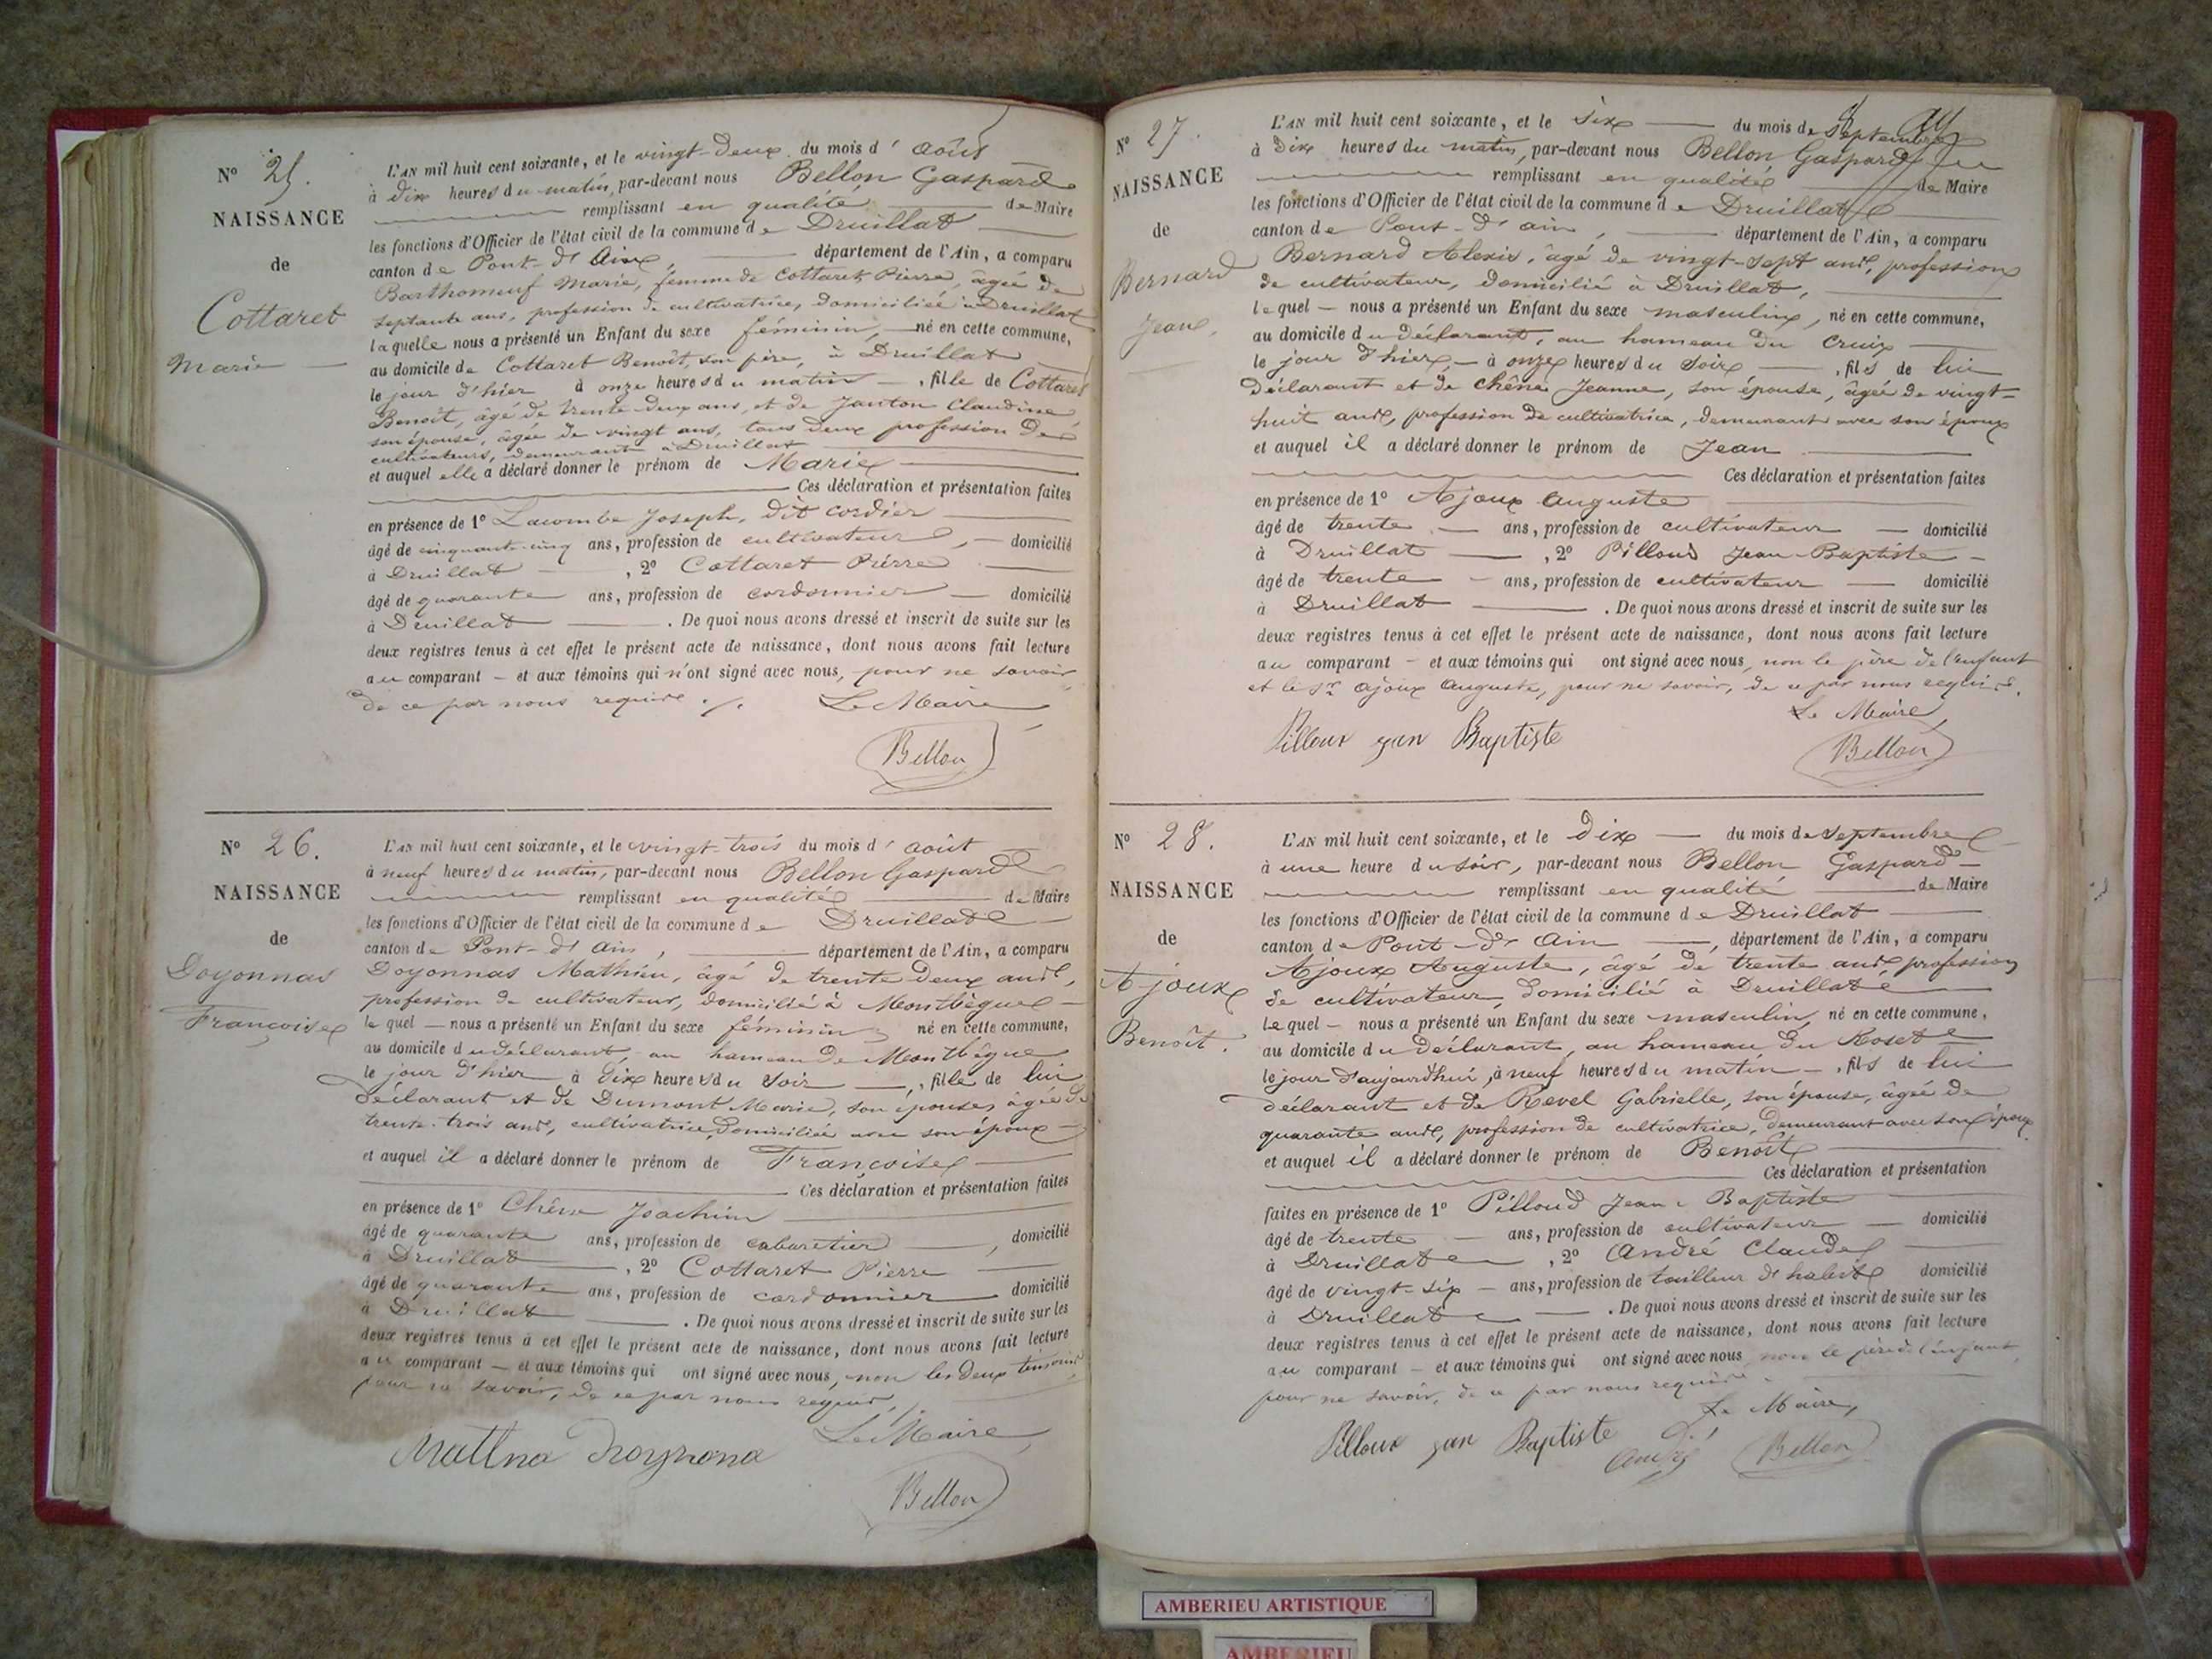 N° 25.
NAISSANCE
de
Cottaret
Marie
L'AN mil huit cent soixante, et le vingt-deux du mois d'août
à dix heures du matin, par-devant nous Bellon Gaspard
remplissant en qualité de Maire
les fonctions d'Officier de l'état civil de la commune de Druillat
canton de Pont-d'Ain, département de l'Ain, a comparu
Barthomeuf Marie, femme de Cottaret Pierre, âgée de
septante ans, profession de cultivatrice, domiciliée à Druillat
laquelle nous a présenté un Enfant du sexe féminin, né en cette commune,
au domicile de Cottaret Benoît, son père, à Druillat
le jour d'hier à onze heures du matin, fille de Cottaret
Benoît, âgé de trente-deux ans, et de Janton Claudine
son épouse, âgée de vingt ans, tous deux profession de
cultivateurs, demeurant à Druillat
et auquel elle a déclaré donner le prénom de Marie
Ces déclaration et présentation faites
en présence de 1° Lacombe Joseph, dit cordier
âgé de cinquante-cinq ans, profession de cultivateur, domicilié
à Druillat, 2° Cottaret Pierre
âgé de quarante ans, profession de cordonnier domicilié
à Druillat. De quoi nous avons dressé et inscrit de suite sur les
deux registres tenus à cet effet le présent acte de naissance, dont nous avons fait lecture
au comparant et aux témoins qui n'ont signé avec nous, pour ne savoir
de ce par nous requis ./. Le Maire
Bellon
N° 26.
NAISSANCE
de
Doyonnas
Françoise
L'AN mil huit cent soixante, et le vingt-trois du mois d'août
à neuf heures du matin, par-devant nous Bellon Gaspard
remplissant en qualité de Maire
les fonctions d'Officier de l'état civil de la commune de Druillat
canton de Pont-d'Ain, département de l'Ain, a comparu
Doyonnas Mathieu, âgé de trente deux ans,
profession de cultivateur, domicilié à Montbègue
lequel nous a présenté un Enfant du sexe féminin, né en cette commune,
au domicile du déclarant, au hameau de Montbègue
le jour d'hier à dix heures du soir, fille de lui
déclarant et de Dumont Marie, son épouse, âgée de
trente-trois ans, cultivatrice, domiciliée avec son époux
et auquel il a déclaré donner le prénom de Françoise
Ces déclaration et présentation faites
en présence de 1° Chêne Joachim
âgé de quarante ans, profession de cabaretier, domicilié
à Druillat, 2° Cottaret Pierre
âgé de quarante ans, profession de cordonnier domicilié
à Druillat. De quoi nous avons dressé et inscrit de suite sur les
deux registres tenus à cet effet le présent acte de naissance, dont nous avons fait lecture
au comparant et aux témoins qui ont signé avec nous, non les deux témoins
pour ne savoir, de ce par nous requis ./.
Le Maire
Bellon
N° 27.
NAISSANCE
de
Bernard
Jean.
L'AN mil huit cent soixante, et le six du mois de Septembre
à dix heures du matin, par-devant nous Bellon Gaspard
remplissant en qualité de Maire
les fonctions d'Officier de l'état civil de la commune de Druillat
canton de Pont-d'ain, département de l'Ain, a comparu
Bernard Alexis, âgé de vingt-sept ans, profession
de cultivateur, domicilié à Druillat,
lequel nous a présenté un Enfant du sexe masculin, né en cette commune,
au domicile du déclarant, au hameau du Cruix
le jour d'hier, à onze heures du soir, fils de lui
déclarant et de Chêne Jeanne, son épouse, âgée de vingt-
huit ans, profession de cultivatrice, demeurant avec son époux
et auquel il a déclaré donner le prénom de Jean
Ces déclaration et présentation faites
en présence de 1° Ajoux Auguste
âgé de trente ans, profession de cultivateur domicilié
à Druillat, 2° Pilloud Jean-Baptiste
âgé de trente ans, profession de cultivateur domicilié
à Druillat. De quoi nous avons dressé et inscrit de suite sur les
deux registres tenus à cet effet le présent acte de naissance, dont nous avons fait lecture
au comparant et aux témoins qui ont signé avec nous, non le père de l'enfant
et le Sr Ajoux Auguste, pour ne savoir, de ce par nous requis.
Le Maire
Pilloux jan Baptiste
Bellon
N° 28.
NAISSANCE
de
Ajoux
Benoît.
L'AN mil huit cent soixante, et le dix du mois de septembre
à une heure du soir, par-devant nous Bellon Gaspard
remplissant en qualité de Maire
les fonctions d'Officier de l'état civil de la commune de Druillat
canton de Pont-d'Ain, département de l'Ain, a comparu
Ajoux Auguste, âgé de trente ans, profession
de cultivateur, domicilié à Druillat
lequel nous a présenté un Enfant du sexe masculin, né en cette commune,
au domicile du déclarant, au hameau du Roset
le jour d'aujourd'hui, à neuf heures du matin, fils de lui
déclarant et de Revel Gabrielle, son épouse, âgée de
quarante ans, profession de cultivatrice, demeurant avec son époux
et auquel il a déclaré donner le prénom de Benoît
Ces déclaration et présentation
faites en présence de 1° Pilloud Jean-Baptiste
âgé de trente ans, profession de cultivateur domicilié
à Druillat, 2° André Claude
âgé de vingt-six ans, profession de tailleur d'habits domicilié
à Druillat. De quoi nous avons dressé et inscrit de suite sur les
deux registres tenus à cet effet le présent acte de naissance, dont nous avons fait lecture
au comparant et aux témoins qui ont signé avec nous, non le père de l'enfant,
pour ne savoir, de ce par nous requis
Le Maire,
Pilloux jan Baptiste
André
Bellon
AMBERIEU ARTISTIQUE
AMBERIEU